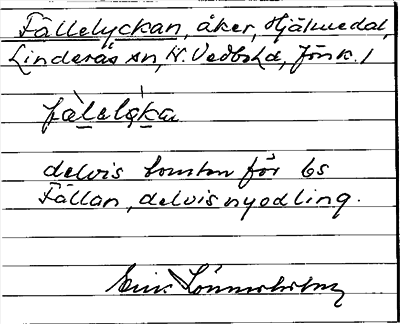 Fällelyckan, åker, Hjälmedal,
Linderås sn, N. Vedbo hd, Jönk. l
fàlelỳka
delvis tomten för bs
Fällan, delvis nyodling.